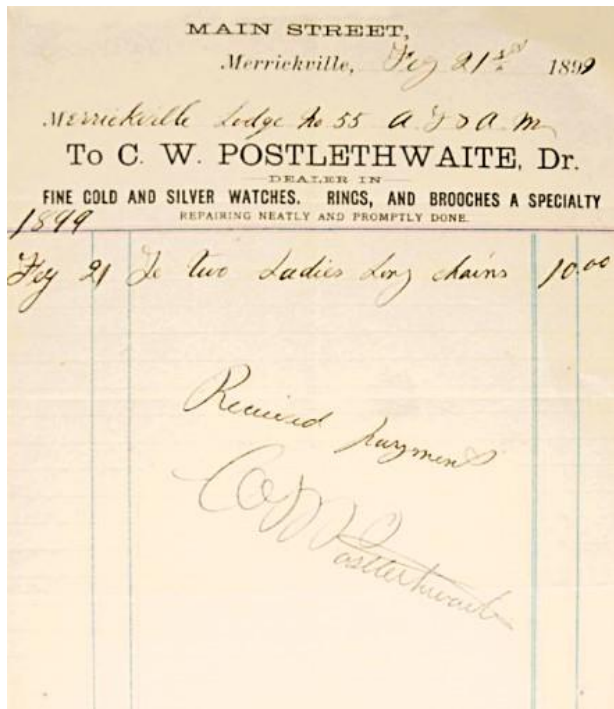 MAIN STREET,
Merrickville, Feby 21st 1899
Merrickville Lodge No 55 A F & A M
To C. W. POSTLETHWAITE, Dr.
DEALER IN
FINE GOLD AND SILVER WATCHES. RINGS, AND BROOCHES A SPECIALTY
REPAIRING NEATLY AND PROMPTLY DONE.
1899
Fby 21 To two Ladies Long chains 10.00
Received payment
C W Postlethwaite